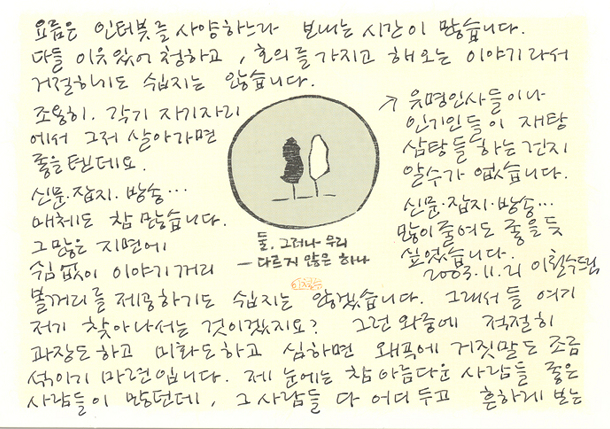 요즘은 인터뷰를 사양하느라 보내는 시간이 많습니다.
다들 이유있어 청하고, 호의를 가지고 해오는 이야기라서
거절하기도 쉽지는 않습니다.
조용히. 각기 자기자리
에서 그저 살아가면
좋을텐데요.
신문·잡지·방송…
매체도 참 많습니다.
그많은 지면에
쉼없이 이야기거리
볼거리를 제공하기도 쉽지는 않겠습니다. 그래서들 여기
저기 찾아나서는 것이겠지요? 그런 와중에 적절히
과장도하고 미화도하고 심하면 왜곡에 거짓말도 조금
섞이기 마련입니다. 제 눈에는 참 아름다운 사람들 좋은
사람들이 많던데, 그 사람들 다 어디 두고 흔하게 보는
↗ 유명인사들이나
인기인들이 재탕
삼탕들 하는건지
알수가 없습니다.
신문·잡지·방송…
많이 줄여도 좋을듯
싶었습니다.
2003.11.21 이철수드림
둘. 그러나 우리
— 다르지 않은 하나
이철수